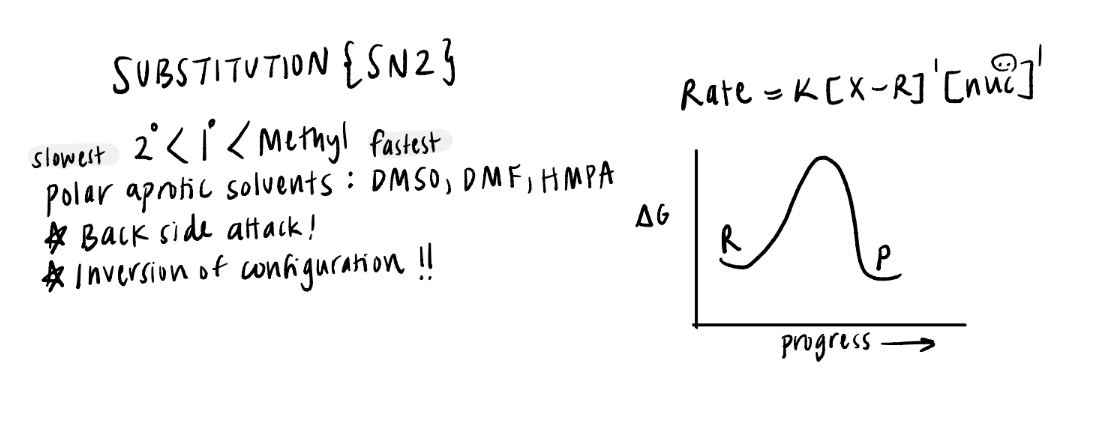 SUBSTITUTION {SN2}
slowest 2° < 1° < Methyl fastest
polar aprotic solvents : DMSO, DMF, HMPA
☆ Back side attack!
☆ Inversion of configuration !!
Rate = K [X-R]¹ [nuc]¹
ΔG
R
P
progress →